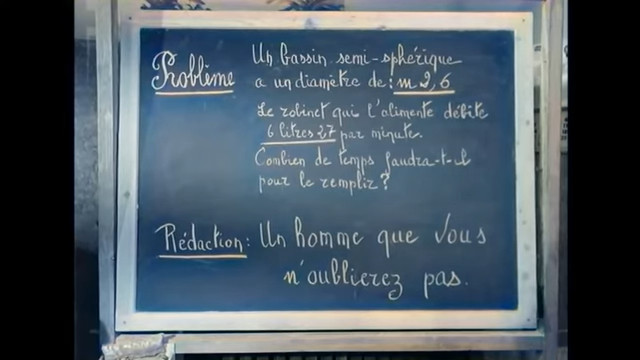 Problème
Un bassin semi-sphérique
a un diamètre de: m 2,6
Le robinet qui l'alimente débite
6 litres 27 par minute.
Combien de temps faudra-t-il
pour le remplir?
Rédaction: Un homme que vous
n'oublierez pas.